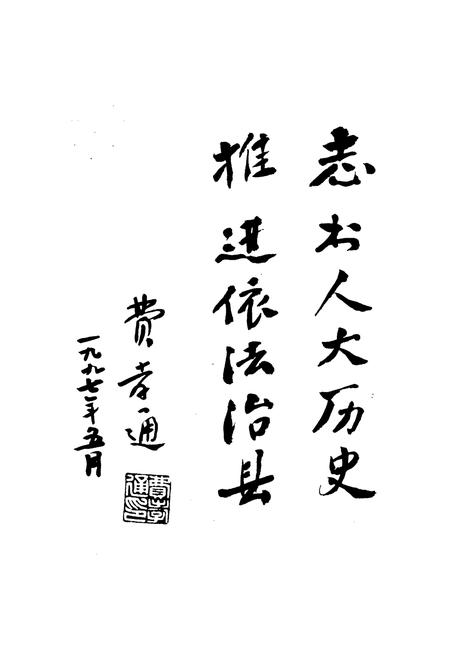 志书人大历史
推进依法治县
费孝通
一九九七年五月
費孝通印